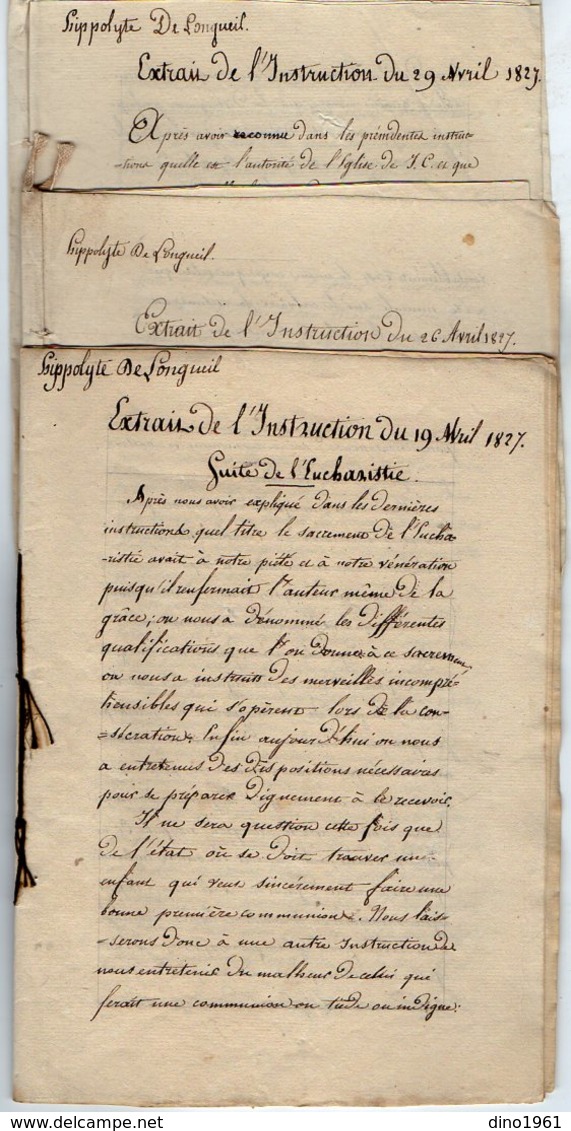 Hippolyte De Longueil.
Extrait de l'Instruction du 29 Avril 1827.
Après avoir reconnu dans les précédentes instruc-
-tions quelle est l'autorité de l'Eglise de J. C. et que
Hippolyte De Longueil.
Extrait de l'Instruction du 26 Avril 1827.
Hippolyte De Longueil
Extrait de l'Instruction du 19 Avril 1827.
Suite de l'Eucharistie.
Après nous avoir expliqué dans les dernières
instructions quel titre le sacrement de l'Eucha-
-ristie avait à notre piété et à notre vénération
puisqu'il renfermait l'auteur même de la
grâce; on nous a dénommé les différentes
qualifications que l'on donne à ce sacrement
on nous a instruit des merveilles incompré-
hensibles qui s'opèrent lors de la con-
-sécration. Enfin aujourd'hui on nous
a entretenus des dispositions nécessaires
pour se préparer dignement à le recevoir.
Il ne sera question cette fois que
de l'état où se doit trouver un
enfant qui veut sincèrement faire une
bonne première communion. Nous lais-
-serons donc à une autre Instruction de
nous entretenir du malheur de celui qui
ferait une communion ou tiède ou indigne.
dino1961